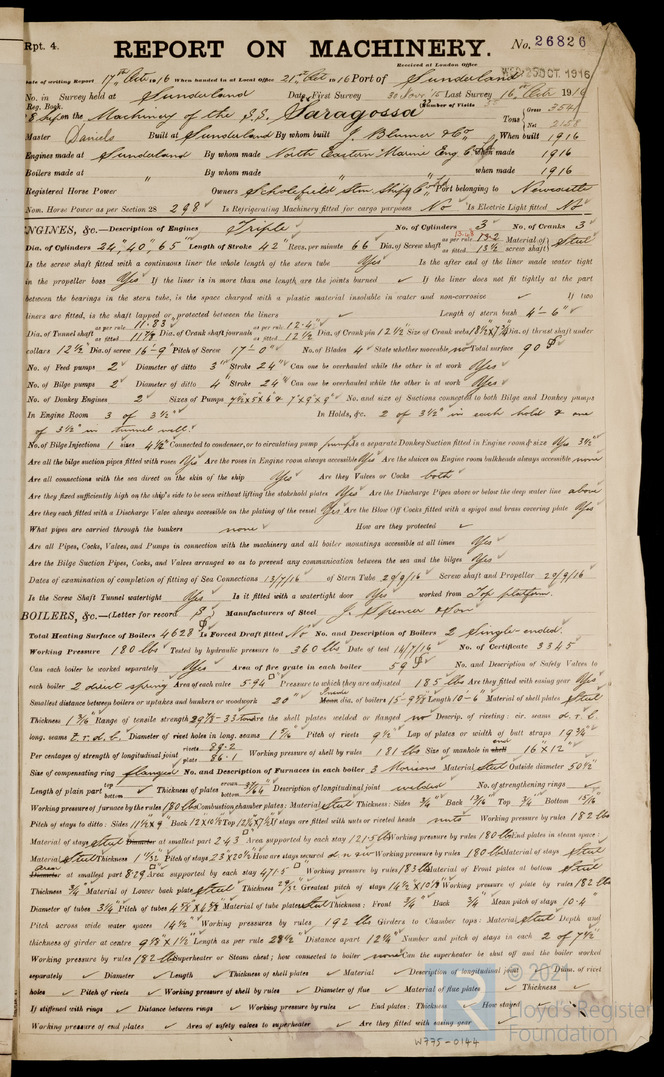 Rpt. 4.
REPORT ON MACHINERY.
No. 26826
Received at London Office
WED. 25 OCT. 1916
Date of writing Report 17th Octr 1916 When handed in at Local Office 21st Oct 1916 Port of Sunderland
No. in Survey held at Sunderland Date, First Survey 30 Last Survey 16th Octr 1916
Reg. Book.
on the Machinery of the S.S. "Saragossa" Number of Visits
Tons Gross 3541 Net
Master Daniels Built at Sunderland By whom built J. Blumer & Co. When built 1916
Engines made at Sunderland By whom made North Eastern Marine Eng. Co Ltd when made 1916
Boilers made at " By whom made " when made 1916
Registered Horse Power Owners Scholefield Stm Shipg Co Ltd Port belonging to Newcastle
Nom. Horse Power as per Section 28 298 Is Refrigerating Machinery fitted for cargo purposes No Is Electric Light fitted No
ENGINES, &c.—Description of Engines Triple No. of Cylinders 3 No. of Cranks 3
Dia. of Cylinders 24", 40", 65" Length of Stroke 42" Revs. per minute 66 Dia. of Screw shaft as per rule 13.2 as fitted 13½ Material of screw shaft Steel
Is the screw shaft fitted with a continuous liner the whole length of the stern tube Yes Is the after end of the liner made water tight
in the propeller boss Yes If the liner is in more than one length are the joints burned ✓ If the liner does not fit tightly at the part
between the bearings in the stern tube, is the space charged with a plastic material insoluble in water and non-corrosive ✓ If two
liners are fitted, is the shaft lapped or protected between the liners ✓ Length of stern bush 4'-6"
Dia. of Tunnel shaft as per rule 11.83 as fitted 11⅞ Dia. of Crank shaft journals as per rule 12.4" as fitted 12½ Dia. of Crank pin 12½" Size of Crank webs Dia. of thrust shaft under
collars 12½" Dia. of screw 16'-9" Pitch of Screw 17'-0" No. of Blades 4 State whether moveable no Total surface 90
No. of Feed pumps 2 Diameter of ditto 3" Stroke 24" Can one be overhauled while the other is at work Yes
No. of Bilge pumps 2 Diameter of ditto 4 Stroke 24" Can one be overhauled while the other is at work Yes
No. of Donkey Engines 2 Sizes of Pumps No. and size of Suctions connected to both Bilge and Donkey pumps
In Engine Room 3 of 3½" In Holds, &c. 2 of 3½" in each hold & one
of 3½" in tunnel well.
No. of Bilge Injections 1 sizes 4½" Connected to condenser, or to circulating pump pump Is a separate Donkey Suction fitted in Engine room & size Yes 3½"
Are all the bilge suction pipes fitted with roses Yes Are the roses in Engine room always accessible Yes Are the sluices on Engine room bulkheads always accessible none
Are all connections with the sea direct on the skin of the ship Yes Are they Valves or Cocks both
Are they fixed sufficiently high on the ship's side to be seen without lifting the stokehold plates Yes Are the Discharge Pipes above or below the deep water line above
Are they each fitted with a Discharge Valve always accessible on the plating of the vessel Yes Are the Blow Off Cocks fitted with a spigot and brass covering plate Yes
What pipes are carried through the bunkers none How are they protected ✓
Are all Pipes, Cocks, Valves, and Pumps in connection with the machinery and all boiler mountings accessible at all times Yes
Are the Bilge Suction Pipes, Cocks, and Valves arranged so as to prevent any communication between the sea and the bilges Yes
Dates of examination of completion of fitting of Sea Connections 13/7/16 of Stern Tube 29/9/16 Screw shaft and Propeller 29/9/16
Is the Screw Shaft Tunnel watertight Yes Is it fitted with a watertight door Yes worked from Top platform.
BOILERS, &c.—(Letter for record S) Manufacturers of Steel J. Spencer & Son
Total Heating Surface of Boilers 4628 Is Forced Draft fitted No No. and Description of Boilers 2 Single-ended.
Working Pressure 180 lbs Tested by hydraulic pressure to 360 lbs Date of test 14/7/16 No. of Certificate 3345
Can each boiler be worked separately Yes Area of fire grate in each boiler 59 No. and Description of Safety Valves to
each boiler 2 direct spring Area of each valve 5.94 Pressure to which they are adjusted 185 lbs Are they fitted with easing gear Yes
Smallest distance between boilers or uptakes and bunkers or woodwork 20" Inside dia. of boilers Length 10'-6" Material of shell plates Steel
Thickness Range of tensile strength Are the shell plates welded or flanged no Descrip. of riveting: cir. seams d.r.l.
long. seams t.r.d.b. Diameter of rivet holes in long. seams Pitch of rivets 9½" Lap of plates or width of butt straps 19¾"
Per centages of strength of longitudinal joint rivets 89.2 plate 86.1 Working pressure of shell by rules 181 lbs Size of manhole in end 16 x 12"
Size of compensating ring flanged No. and Description of Furnaces in each boiler 3 Morisons Material Steel Outside diameter 50½"
Length of plain part top bottom Thickness of plates crown bottom Description of longitudinal joint welded No. of strengthening rings ✓
Working pressure of furnace by the rules 180 lbs Combustion chamber plates: Material Steel Thickness: Sides ¾" Back Top ¾" Bottom
Pitch of stays to ditto: Sides Back Top If stays are fitted with nuts or riveted heads nuts Working pressure by rules 182 lbs
Material of stays Steel at smallest part 2.43 Area supported by each stay Working pressure by rules 180 lbs End plates in steam space:
Material Steel Thickness Pitch of stays How are stays secured Working pressure by rules 180 lbs Material of stays Steel
Area at smallest part 8.29 Area supported by each stay 471.5 Working pressure by rules 183 lbs Material of Front plates at bottom Steel
Thickness ¾" Material of Lower back plate Steel Thickness Greatest pitch of stays Working pressure of plate by rules 182 lbs
Diameter of tubes 3¼" Pitch of tubes Material of tube plates Steel Thickness: Front ¾" Back ¾" Mean pitch of stays
Pitch across wide water spaces 14½" Working pressures by rules 192 lbs Girders to Chamber tops: Material Steel Depth and
thickness of girder at centre 9⅝ x 1½" Length as per rule Distance apart 12¼" Number and pitch of stays in each 2 of 7½"
Working pressure by rules 182 lbs Superheater or Steam chest; how connected to boiler none Can the superheater be shut off and the boiler worked
separately ✓ Diameter ✓ Length ✓ Thickness of shell plates ✓ Material Description of longitudinal joint Diam. of rivet
holes ✓ Pitch of rivets ✓ Working pressure of shell by rules ✓ Diameter of flue ✓ Material of flue plates ✓ Thickness ✓
If stiffened with rings ✓ Distance between rings ✓ Working pressure by rules ✓ End plates: Thickness ✓ How stayed
Working pressure of end plates ✓ Area of safety valves to superheater ✓ Are they fitted with easing gear ✓
© 2021
Lloyd's Register
Foundation
W775-0144